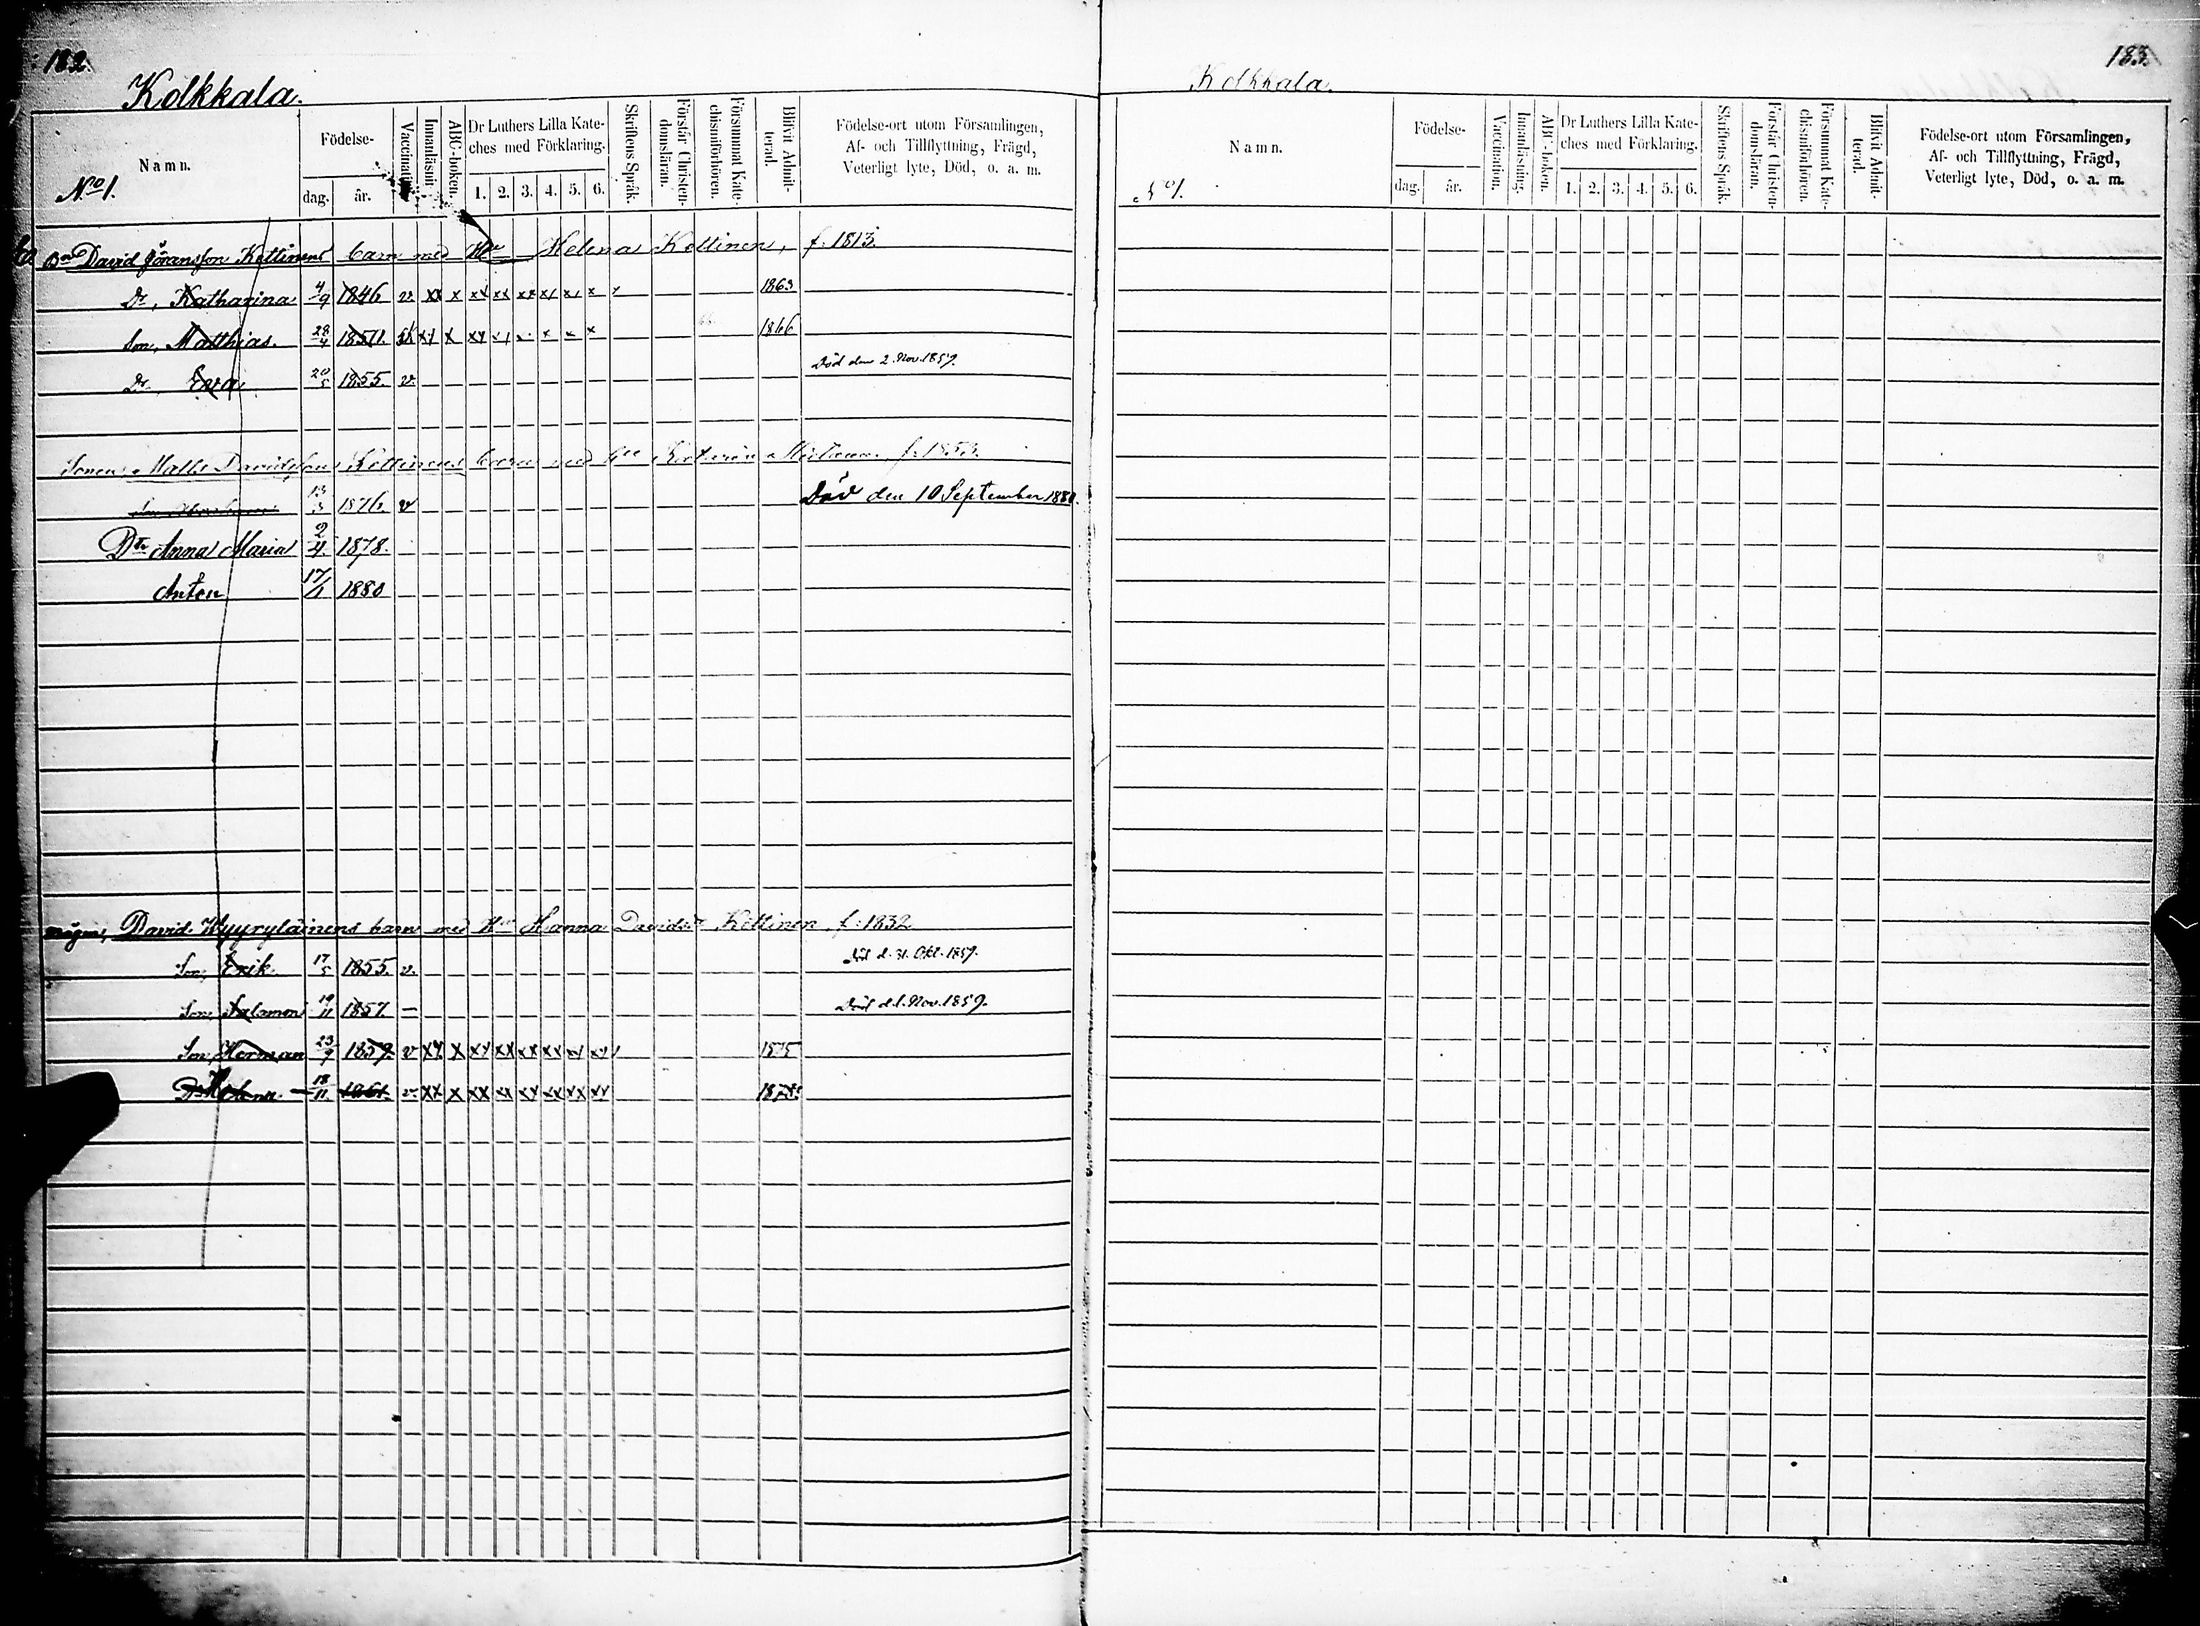 182.
Kolkkala.
Namn.
No 1.
Födelse-
dag. år.
Vaccination.
Innanläsning.
ABC-boken.
Dr Luthers Lilla Kate-
ches med Förklaring.
1. 2. 3. 4. 5. 6.
Skriftens Språk.
Förstår Christen-
domsläran.
Försummat Kate-
chismiförhören.
Blifvit Admit-
terad.
Födelse-ort utom Församlingen,
Af- och Tillflyttning, Frägd,
Veterligt lyte, Död, o. a. m.
Bn David Göransson Kettinens barn med Hu Helena Kettinen, f. 1813.
Dr, Katharina 4/9 1846 v. xx x xx xx xx x x x 1863
Son, Matthias. 28/4 1850. xx x xx x x x 1866
Dr, Eva 20/5 1855. v. Död den 2. Nov. 1859.
Sonen, Matts Davidsson Kettinens barn med Hu f. 1853.
13/3 1876. v Död den 10 September 1880.
Dtr Anna Maria 2/4. 1878.
Anton 17/1 1880
mågen, David Kyyryläinens barn med Hu Hanna Davidsdr Kettinen, f. 1832
Son, Erik 17/5 1855. v. Död d. 31. Okt. 1859.
Son, Salomon 19/11 1857. – Död d. 1. Nov. 1859.
Son, Herman 23/9 1859. v xx x xx xx xx xx xx xx 1875
Dr Helena 18/11 1861. v. xx x xx xx xx xx xx xx
183.
Kolkkala.
Namn.
No 1.
Födelse-
dag. år.
Vaccination.
Innanläsning.
ABC-boken.
Dr Luthers Lilla Kate-
ches med Förklaring.
1. 2. 3. 4. 5. 6.
Skriftens Språk.
Förstår Christen-
domsläran.
Försummat Kate-
chismiförhören.
Blifvit Admit-
terad.
Födelse-ort utom Församlingen,
Af- och Tillflyttning, Frägd,
Veterligt lyte, Död, o. a. m.